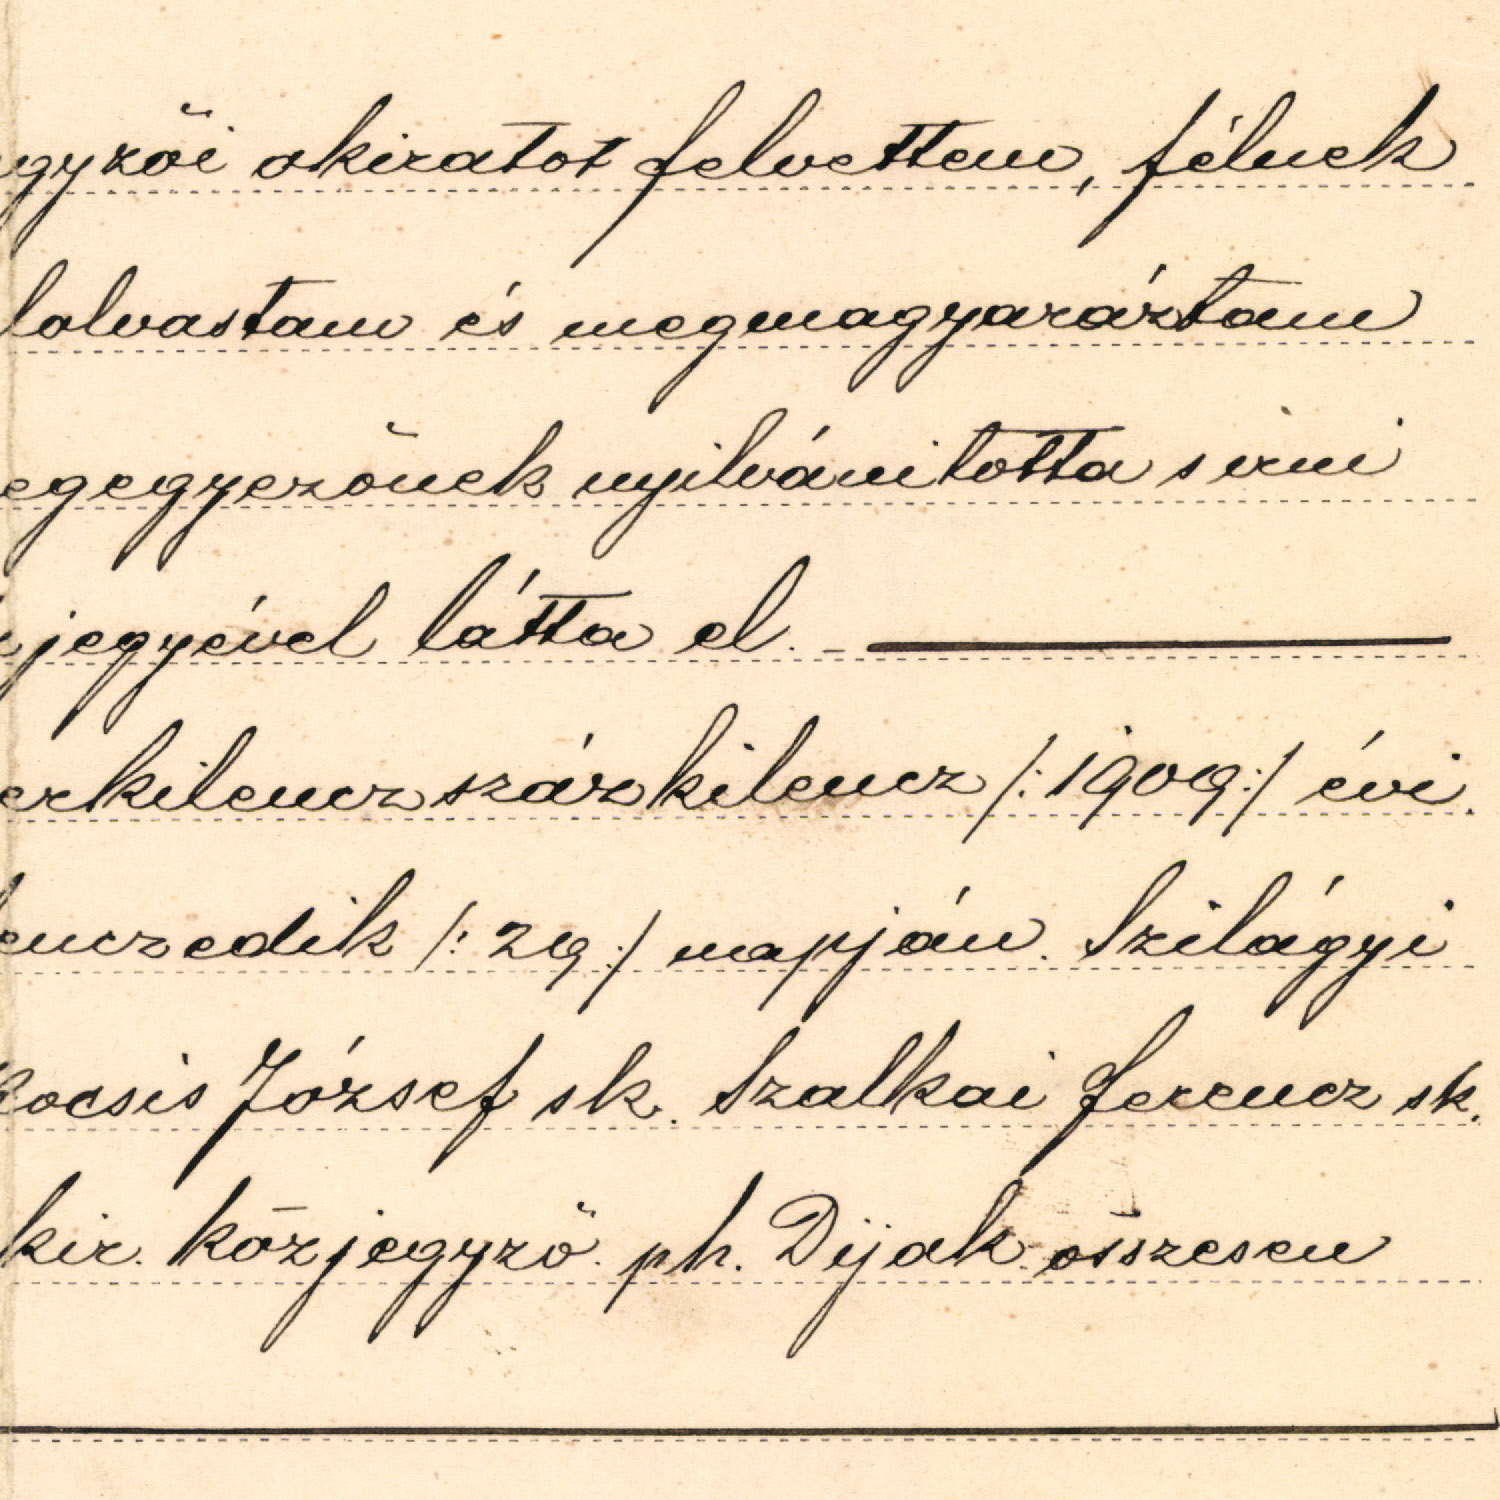 gyzői okiratot felvettem, félnek
lolvastam és megmagyaráztam
egegyezőnek nyilvánitotta s irni
jegyével látta el. —
erkilenczszázkilencz /:1909:/ évi
enczedik /:29:/ napján. Szilágyi
Kocsis József sk. Szalkai Ferencz sk.
kir. közjegyző. ph. Díjak összesen